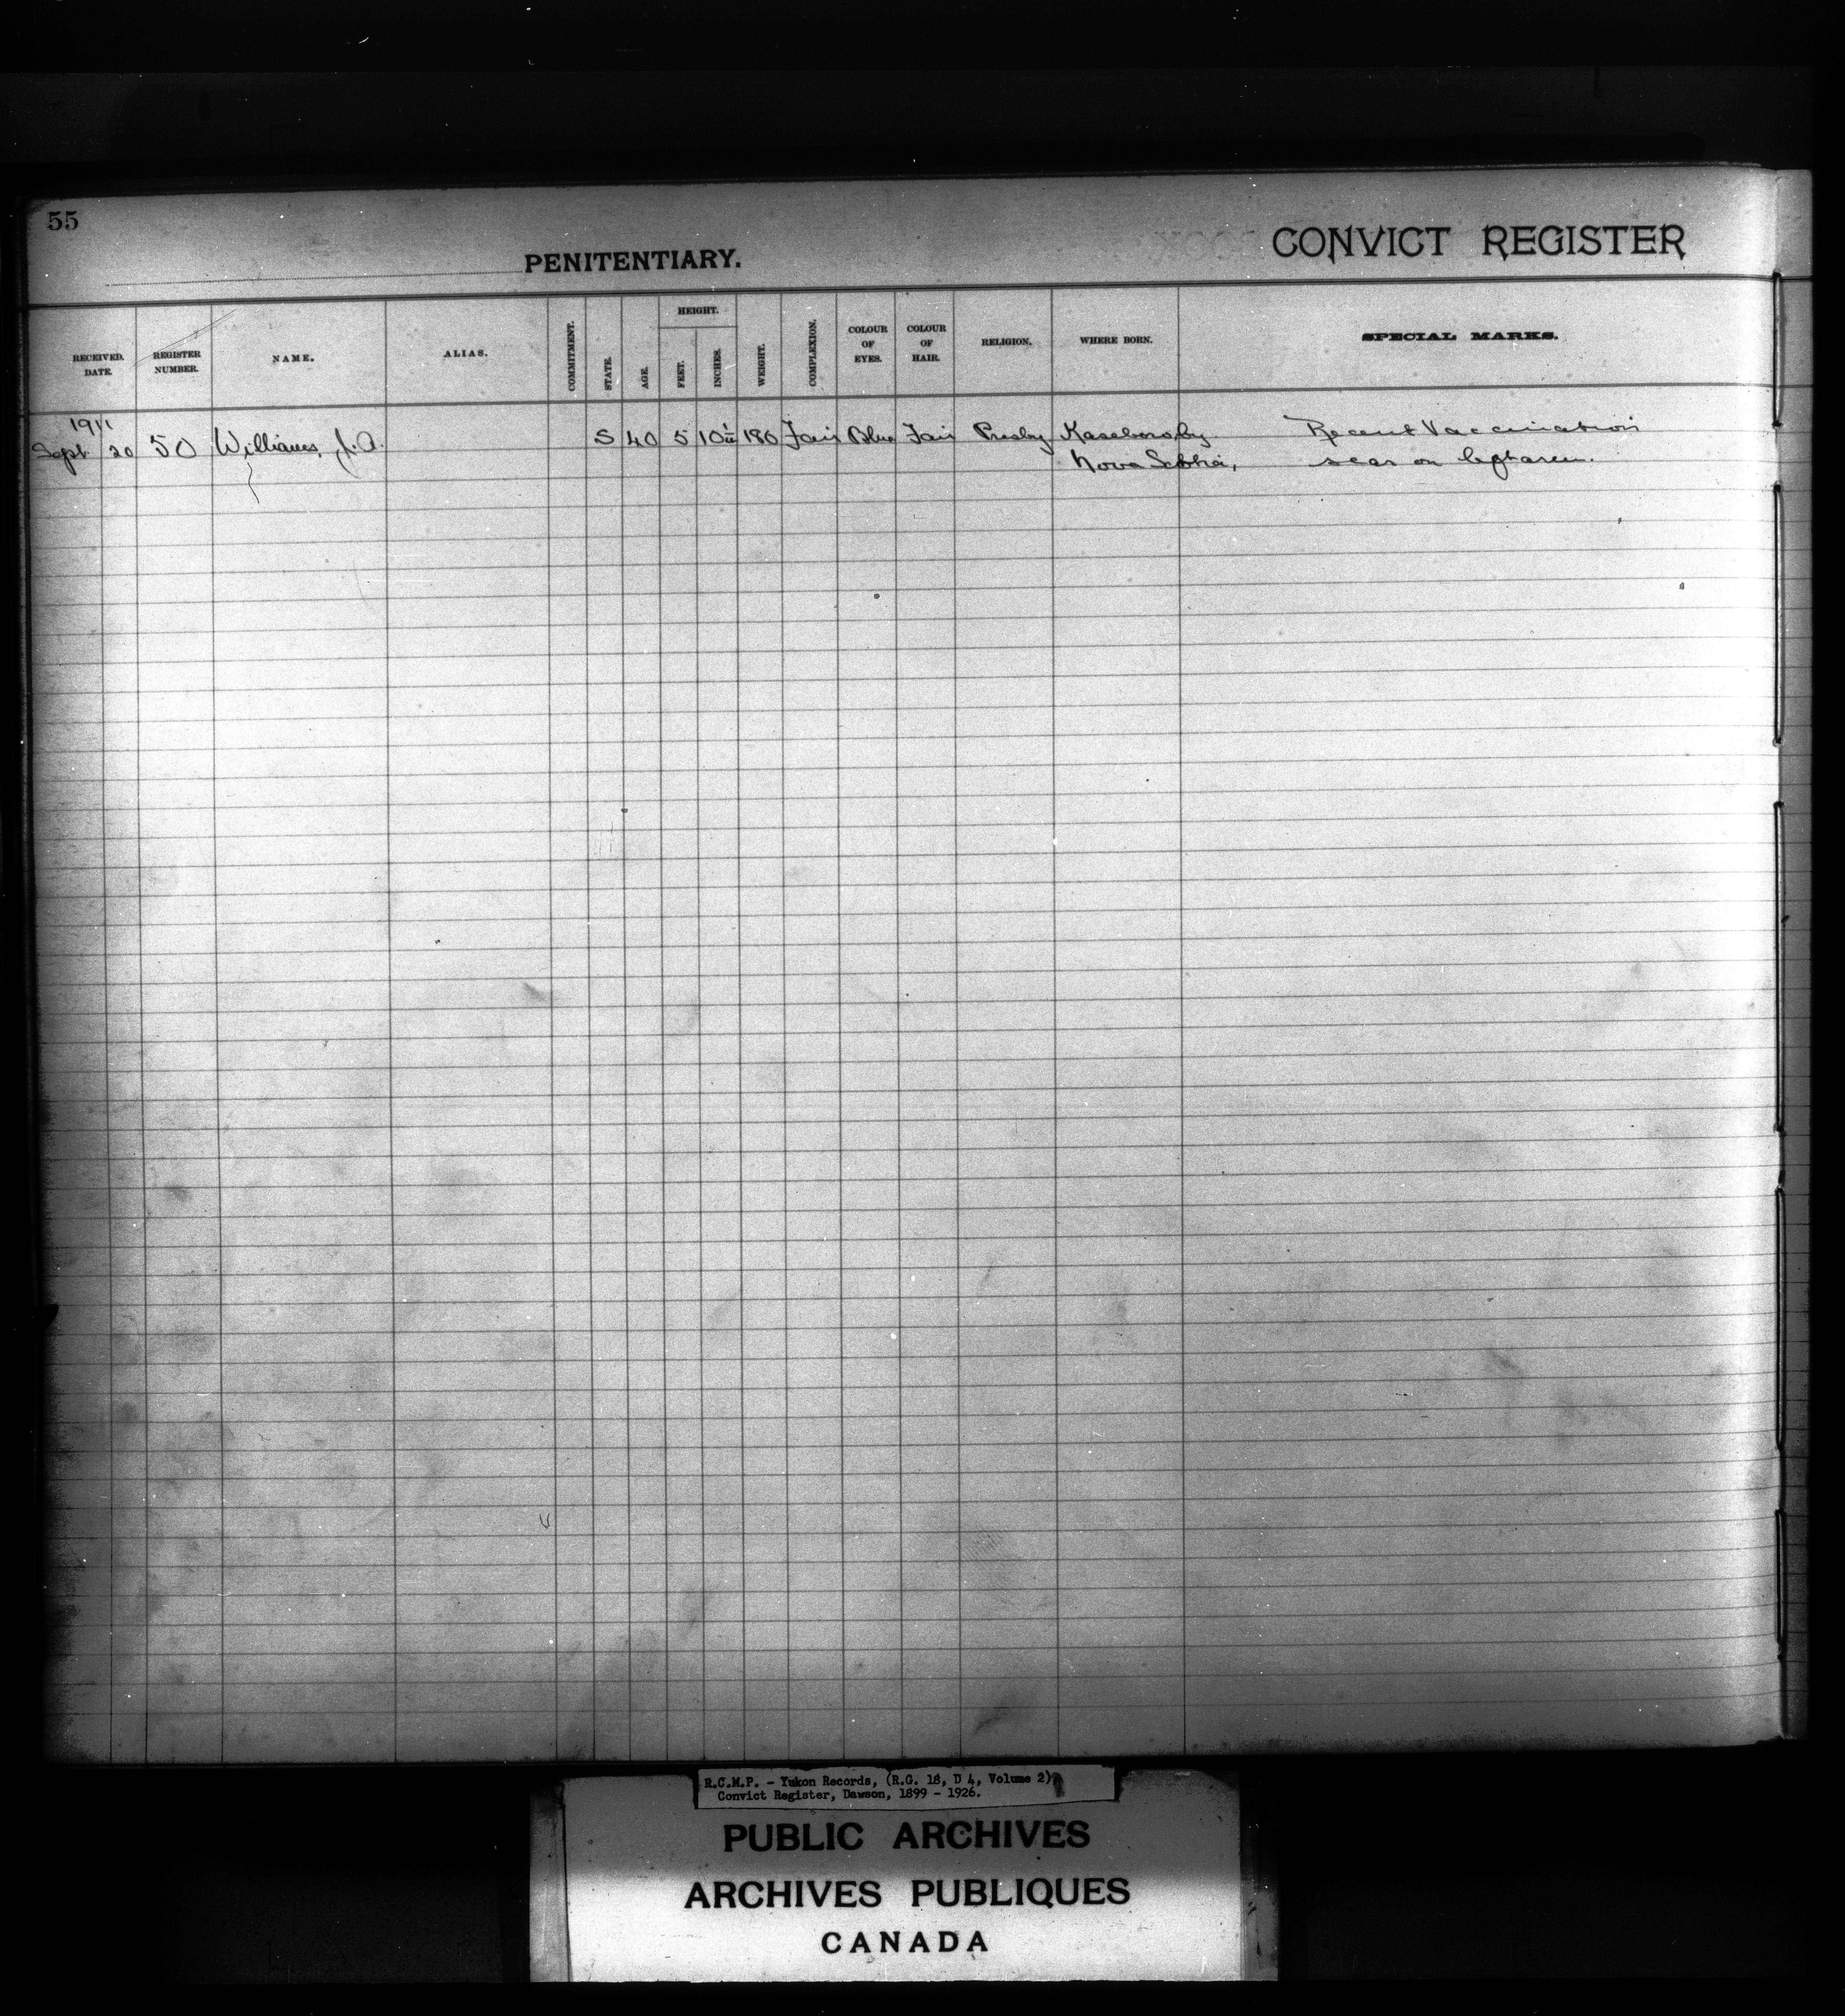 55
PENITENTIARY.
CONVICT REGISTER
RECEIVED. DATE.
REGISTER NUMBER.
NAME.
ALIAS.
COMMITMENT.
STATE.
AGE.
HEIGHT.
FEET.
INCHES.
WEIGHT.
COMPLEXION.
COLOUR OF EYES.
COLOUR OF HAIR.
RELIGION.
WHERE BORN.
SPECIAL MARKS.
1911
Sept 20 50 Williams, J. A. S 40 5 10 180 Fair Blue Fair Presby Recent Vaccination
Nova Scotia, scar on left arm.
R.C.M.P. - Yukon Records, (R.G. 18, D 4, Volume 2),
Convict Register, Dawson, 1899 - 1926.
PUBLIC ARCHIVES
ARCHIVES PUBLIQUES
CANADA